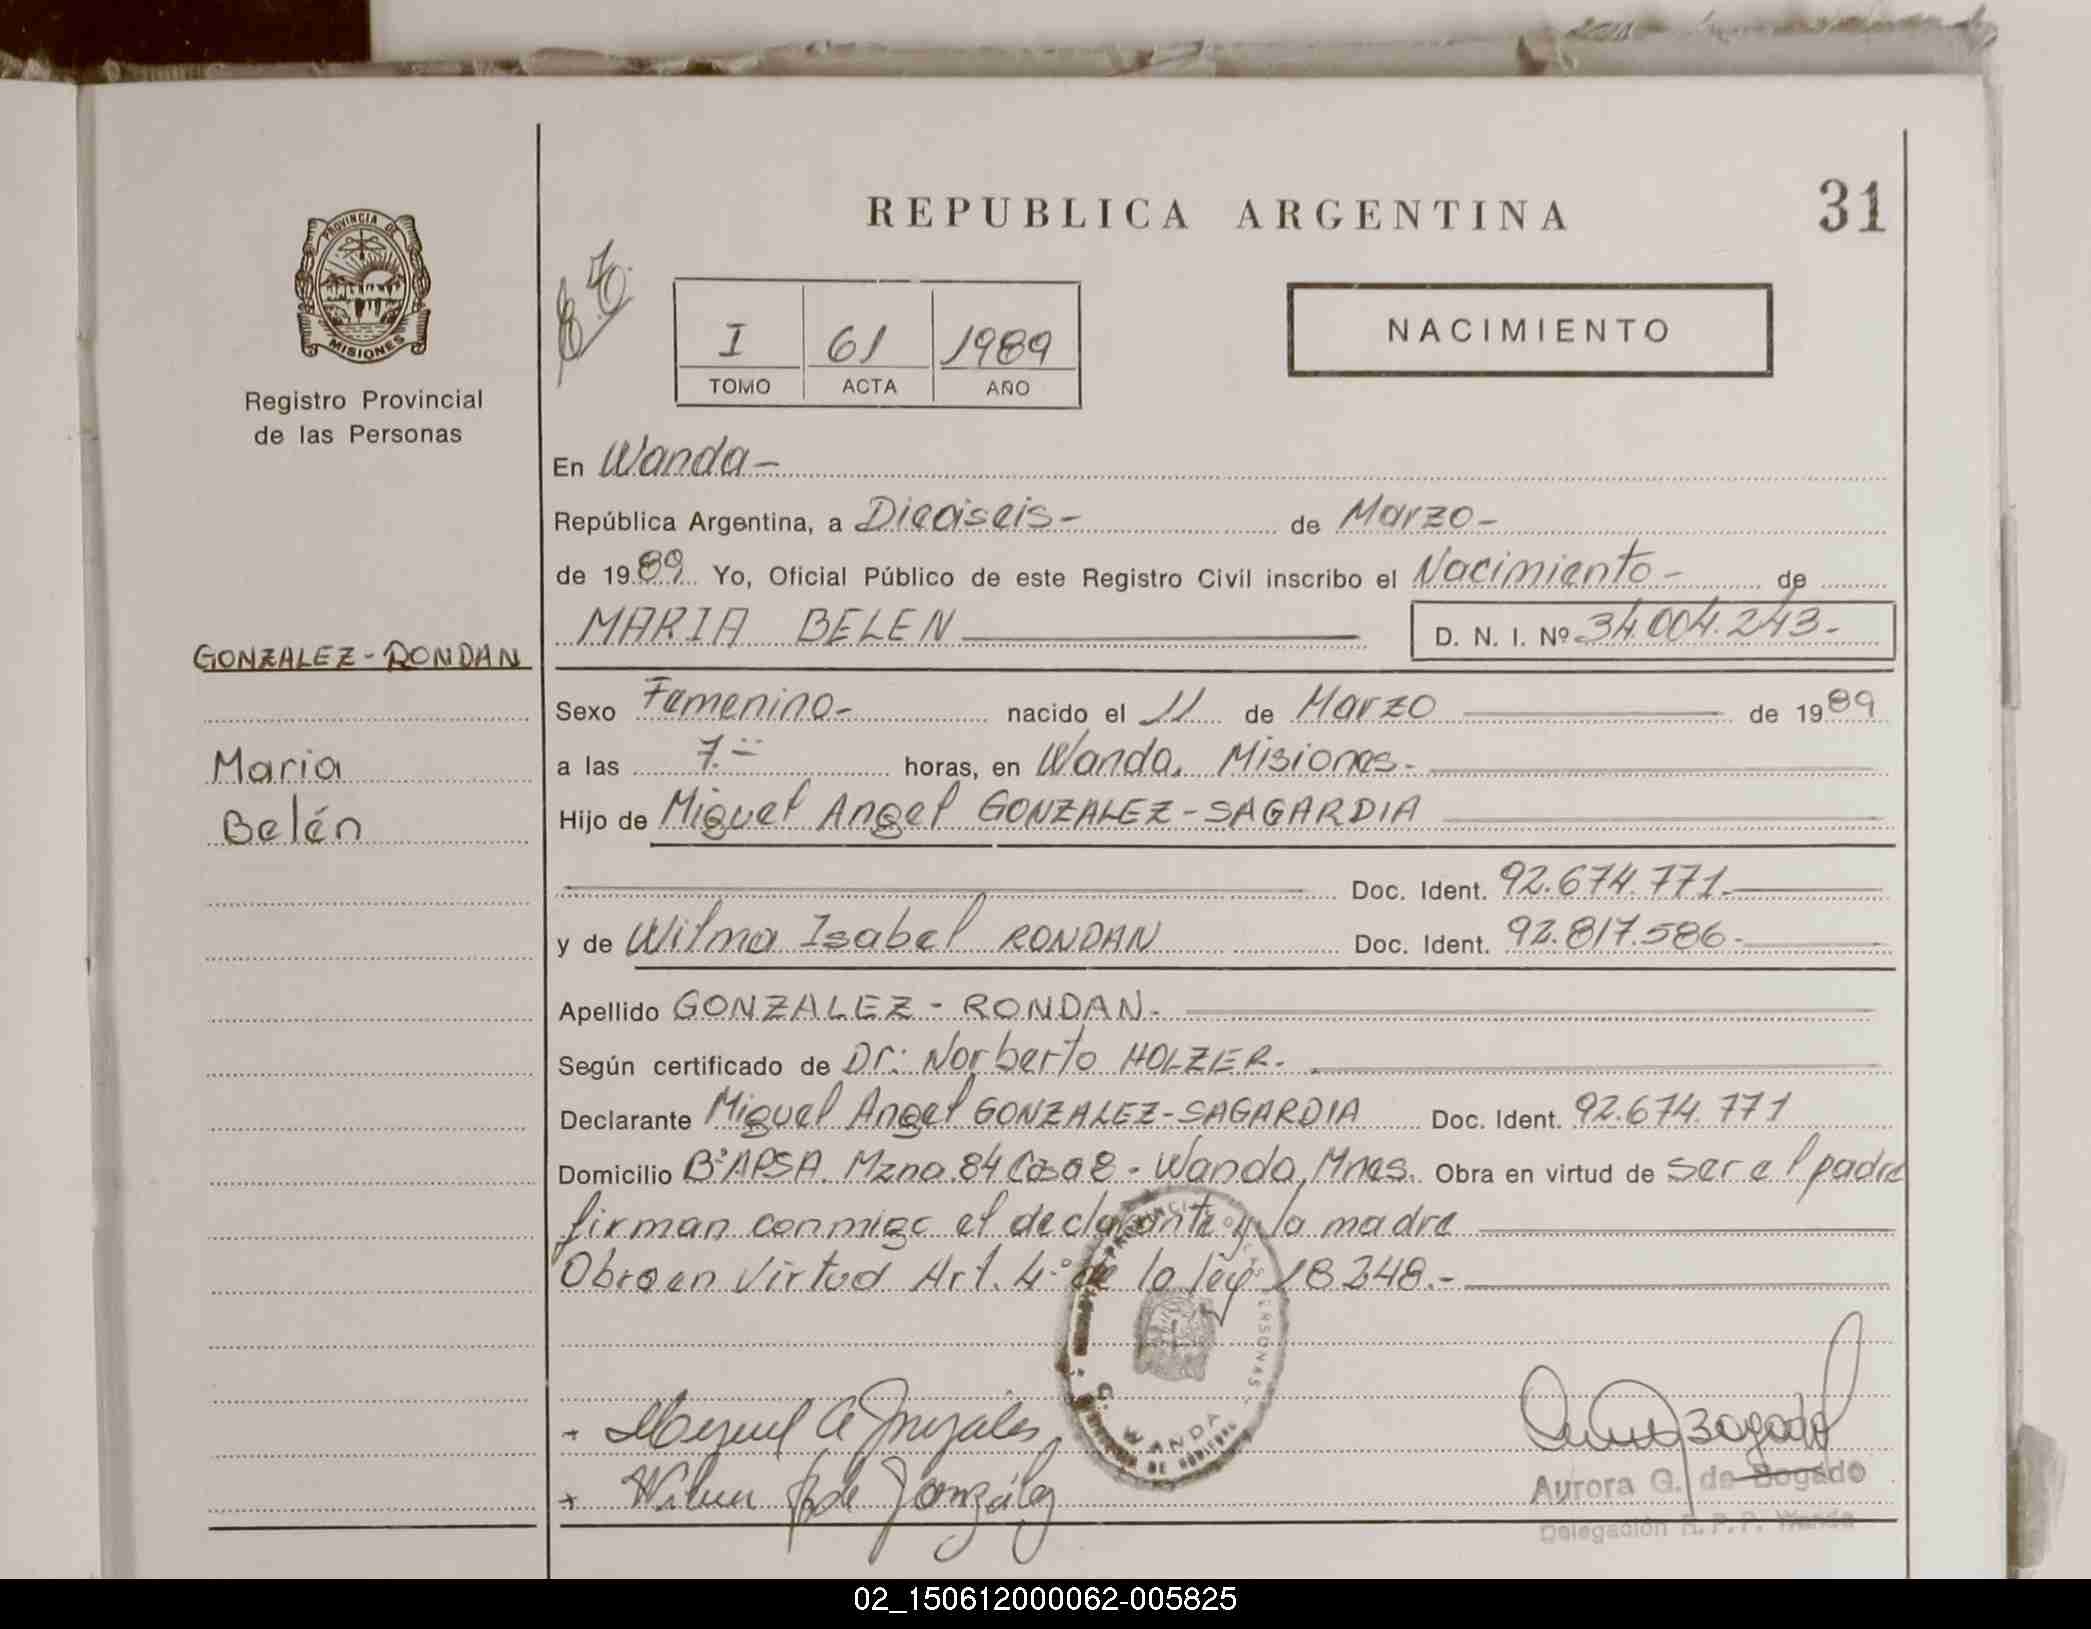 REPUBLICA ARGENTINA
31
PROVINCIA DE
MISIONES
Registro Provincial
de las Personas
I 61 1989
TOMO ACTA AÑO
NACIMIENTO
En Wanda-
República Argentina, a Dieciseis- de Marzo-
de 1989 Yo, Oficial Público de este Registro Civil inscribo el Nacimiento- de
MARIA BELEN D. N. I. Nº 34.004.243.-
GONZALEZ-RONDAN
Maria
Belén
Sexo Femenino- nacido el 11 de Marzo de 1989
a las 7.- horas, en Wanda, Misiones.-
Hijo de Miguel Angel GONZALEZ-SAGARDIA
Doc. Ident. 92.674.771.
y de Wilma Isabel RONDAN Doc. Ident. 92.817.586-
Apellido GONZALEZ - RONDAN.-
Según certificado de Dr: Norberto HOLZER.-
Declarante Miguel Angel GONZALEZ-SAGARDIA Doc. Ident. 92.674.771
Domicilio Bº APSA. Mzna.84 Casa 8 - Wanda, Mnes. Obra en virtud de ser el padre
firman conmigo el declarante y la madre
Obro en Virtud Art. 4º de la ley 18248.-
WANDA
Miguel A Gonzales
Wilma de González
Bogado
Aurora G. de Bogado
Delegación R.P.P. Wanda
02_150612000062-005825